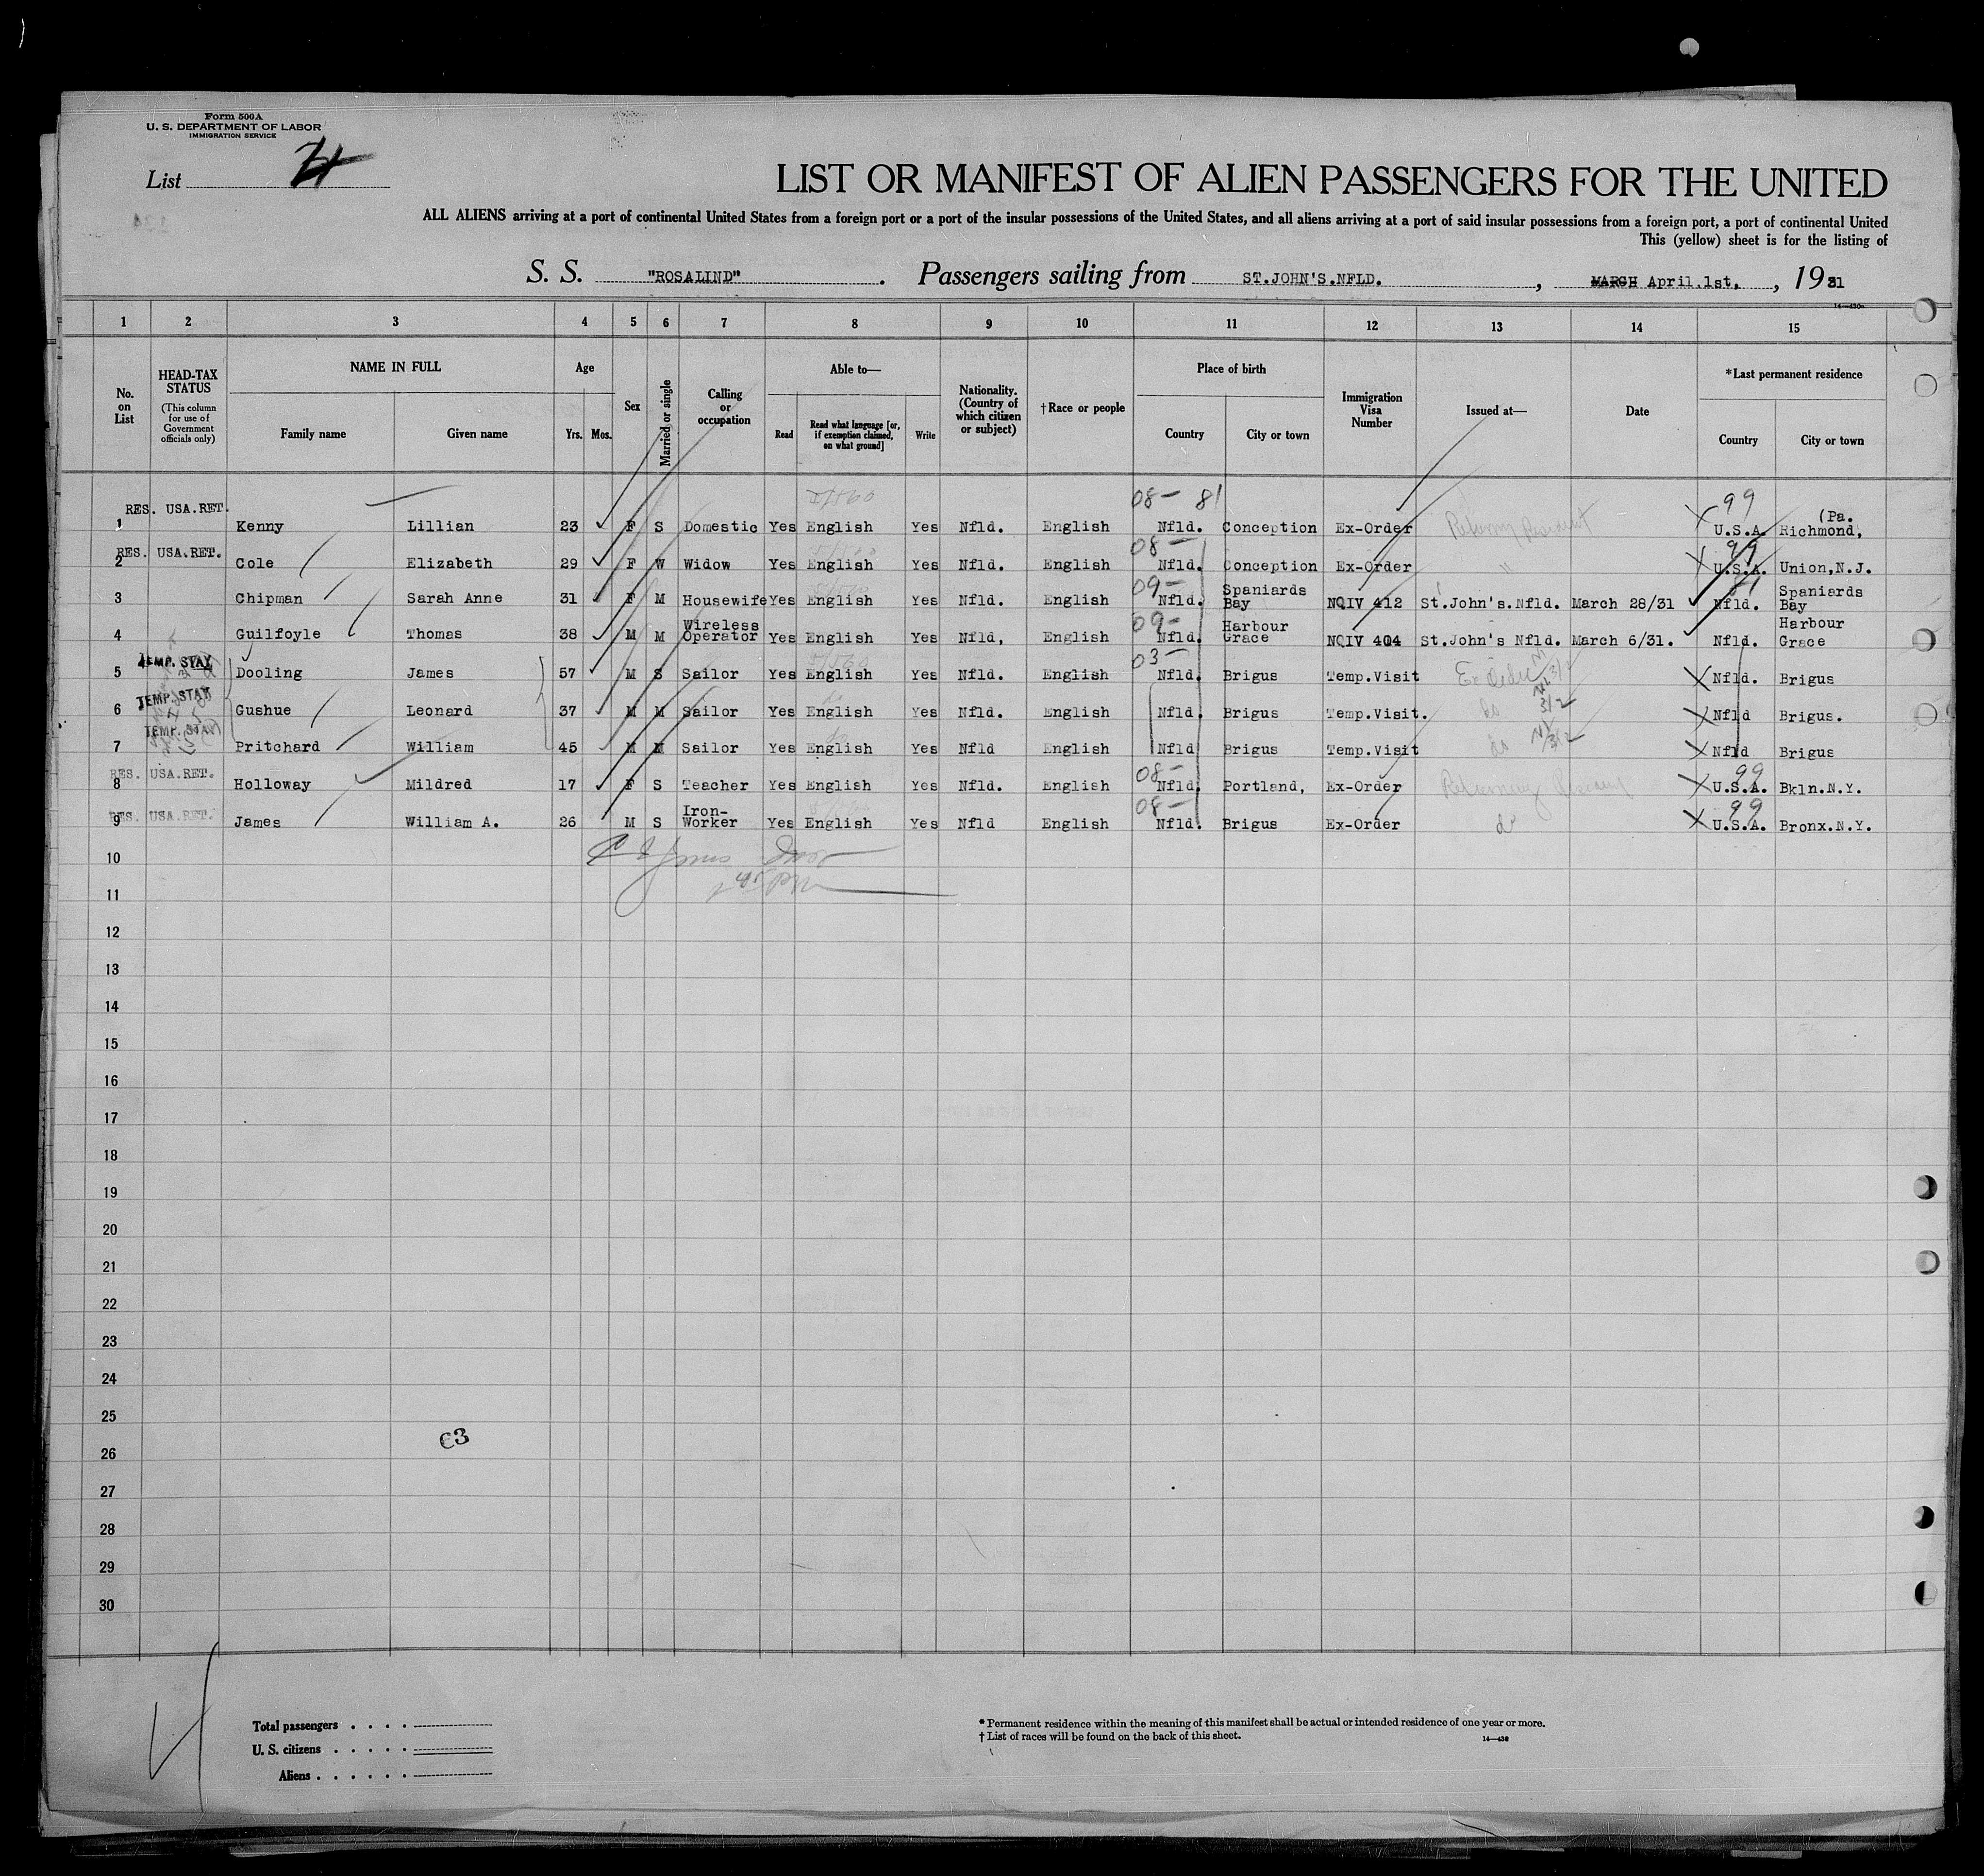 Form 500A
U. S. DEPARTMENT OF LABOR
IMMIGRATION SERVICE
List 4
LIST OR MANIFEST OF ALIEN PASSENGERS FOR THE UNITED
ALL ALIENS arriving at a port of continental United States from a foreign port or a port of the insular possessions of the United States, and all aliens arriving at a port of said insular possessions from a foreign port, a port of continental United
This (yellow) sheet is for the listing of
S. S. "ROSALIND". Passengers sailing from ST.JOHN'S.NFLD. , MARCH April.1st, , 1931
14—430a
1 2 3 4 5 6 7 8 9 10 11 12 13 14 15
No. on List
HEAD-TAX STATUS (This column for use of Government officials only)
NAME IN FULL Family name Given name
Age Yrs. Mos.
Sex
Married or single
Calling or occupation
Able to— Read Read what language [or, if exemption claimed, on what ground] Write
Nationality. (Country of which citizen or subject)
†Race or people
Place of birth Country City or town
Immigration Visa Number
Issued at—
Date
*Last permanent residence Country City or town
RES. USA.RET. 08- 81 99
1 Kenny Lillian 23 F S Domestic Yes English Yes Nfld. English Nfld. Conception Ex-Order U.S.A. Richmond, (Pa.
RES. USA.RET. 08- 99
2 Cole Elizabeth 29 F W Widow Yes English Yes Nfld. English Nfld. Conception Ex-Order U.S.A. Union,N.J.
3 Chipman Sarah Anne 31 F M Housewife Yes English Yes Nfld. English 09- Nfld. Spaniards Bay NQIV 412 St.John's.Nfld. March 28/31 Nfld. Spaniards Bay
4 Guilfoyle Thomas 38 M M Wireless Operator Yes English Yes Nfld, English 09- Nfld. Harbour Grace NQIV 404 St.John's Nfld. March 6/31. Nfld. Harbour Grace
TEMP. STAY 03-
5 Dooling James 57 M S Sailor Yes English Yes Nfld. English Nfld. Brigus Temp.Visit Nfld. Brigus
TEMP. STAY
6 Gushue Leonard 37 M M Sailor Yes English Yes Nfld. English Nfld. Brigus Temp.Visit. do 3/2 Nfld Brigus.
TEMP. STAY
7 Pritchard William 45 M M Sailor Yes English Yes Nfld English Nfld Brigus Temp.Visit do 3/2 Nfld Brigus
RES. USA.RET. 08- 99
8 Holloway Mildred 17 F S Teacher Yes English Yes Nfld. English Nfld. Portland, Ex-Order Returning U.S.A. Bkln.N.Y.
RES. USA.RET. 08- 99
9 James William A. 26 M S Iron-Worker Yes English Yes Nfld English Nfld. Brigus Ex-Order do U.S.A. Bronx.N.Y.
10
11
12
13
14
15
16
17
18
19
20
21
22
23
24
25
26
27
28
29
30
4
Total passengers . . . .
U. S. citizens . . . . .
Aliens . . . . . .
* Permanent residence within the meaning of this manifest shall be actual or intended residence of one year or more.
† List of races will be found on the back of this sheet.
14—430